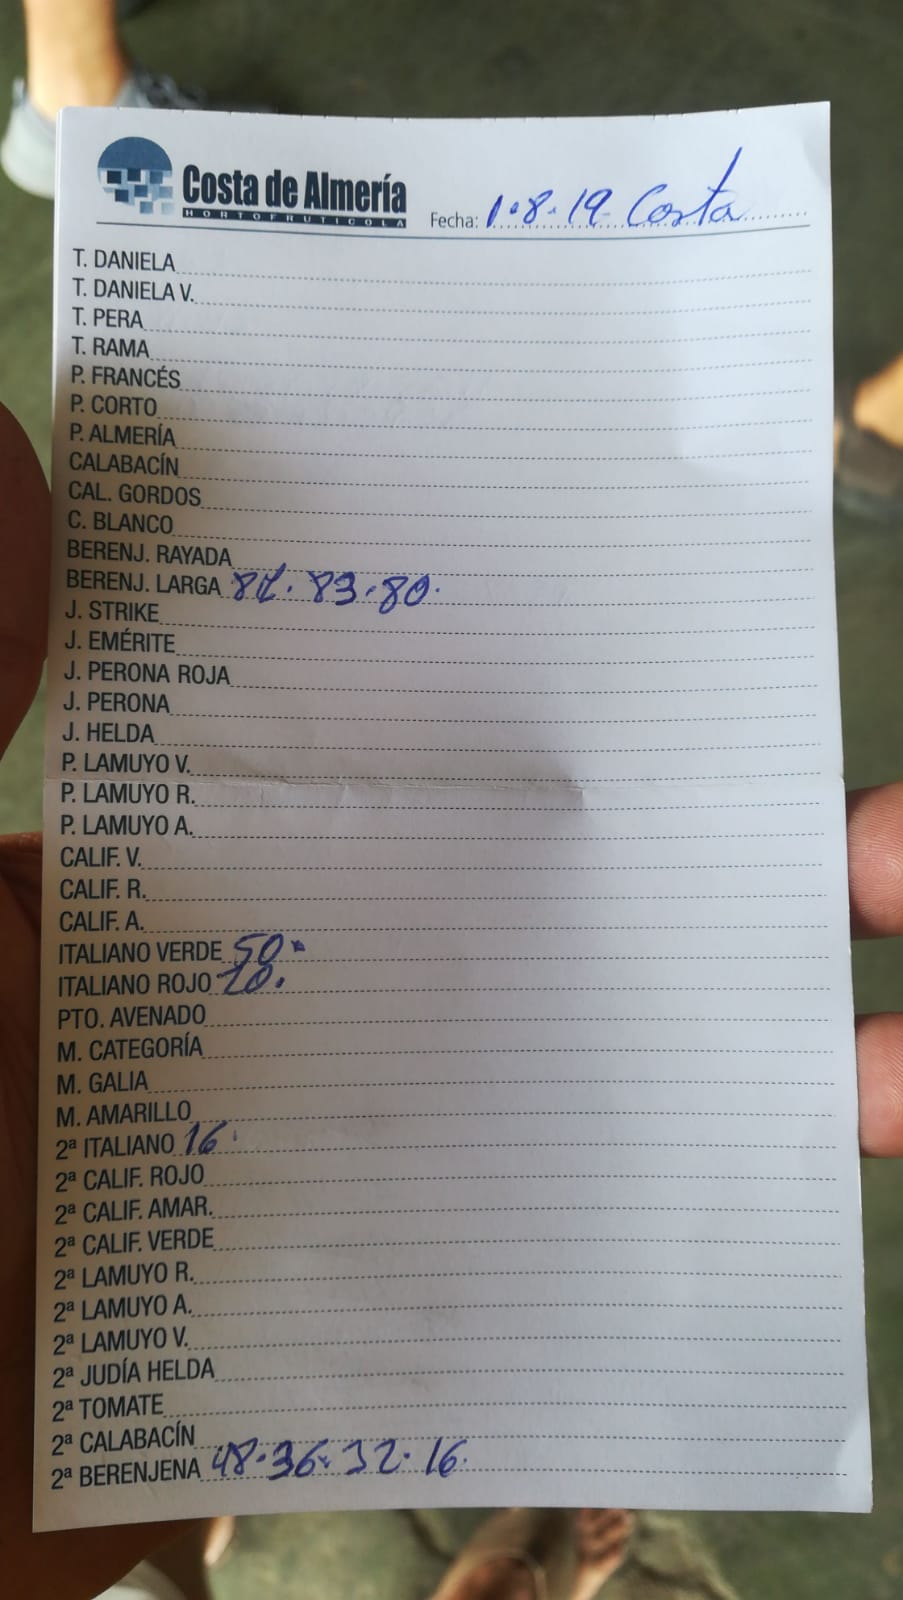 Costa de Almería
HORTOFRUTICOLA
Fecha: 1.8.19 Costa
T. DANIELA
T. DANIELA V.
T. PERA
T. RAMA
P. FRANCÉS
P. CORTO
P. ALMERÍA
CALABACÍN
CAL. GORDOS
C. BLANCO
BERENJ. RAYADA
BERENJ. LARGA 83.80.
J. STRIKE
J. EMÉRITE
J. PERONA ROJA
J. PERONA
J. HELDA
P. LAMUYO V.
P. LAMUYO R.
P. LAMUYO A.
CALIF. V.
CALIF. R.
CALIF. A.
ITALIANO VERDE 50.
ITALIANO ROJO
PTO. AVENADO
M. CATEGORÍA
M. GALIA
M. AMARILLO
2ª ITALIANO 16.
2ª CALIF. ROJO
2ª CALIF. AMAR.
2ª CALIF. VERDE
2ª LAMUYO R.
2ª LAMUYO A.
2ª LAMUYO V.
2ª JUDÍA HELDA
2ª TOMATE
2ª CALABACÍN
2ª BERENJENA 48.36.32.16.